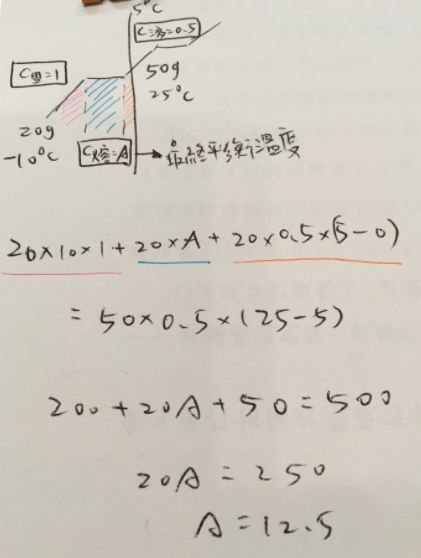 5°C
C液=0.5
C固=1
50g
25°C
20g
-10°C
C熔=A → 最終平衡溫度
20×10×1+20×A+20×0.5×(5-0)
=50×0.5×(25-5)
200+20A+50=500
20A=250
A=12.5